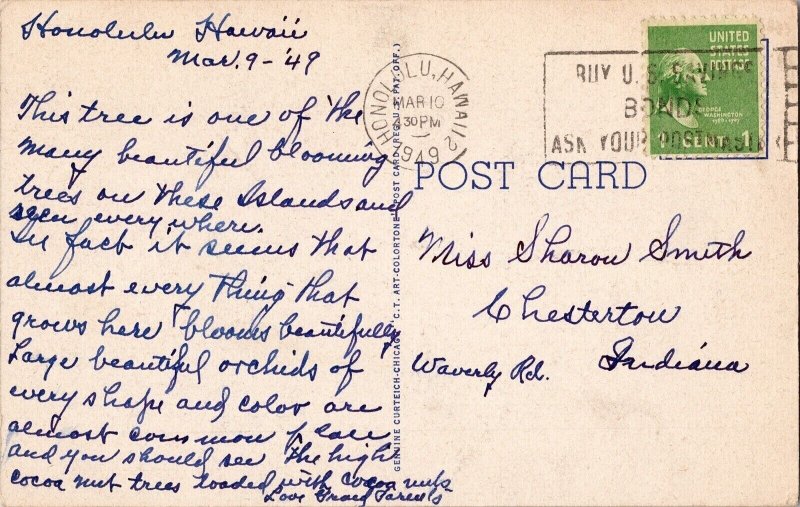 Honolulu Hawaii
Mar. 9 - '49
This tree is one of the
many beautiful blooming
trees on these Islands and
seen every where.
In fact it seems that
almost every thing that
grows here blooms beautifully
Large beautiful orchids of
every shape and color are
almost common place
and you should see the high
cocoa nut trees loaded with cocoa nuts
Love Grand Parents
GENUINE CURTEICH-CHICAGO "C.T. ART-COLORTONE" POST CARD (REG. U.S. PAT. OFF.)
HONOLULU, HAWAII 2
MAR 10
430 PM
1949
BUY U.S. SAVINGS
BONDS
ASK YOUR POSTMASTER
UNITED
STATES
POSTAGE
GEORGE
WASHINGTON
1789-1797
1 CENT 1
POST CARD
Miss Sharon Smith
Chesterton
Waverly Rd. Indiana